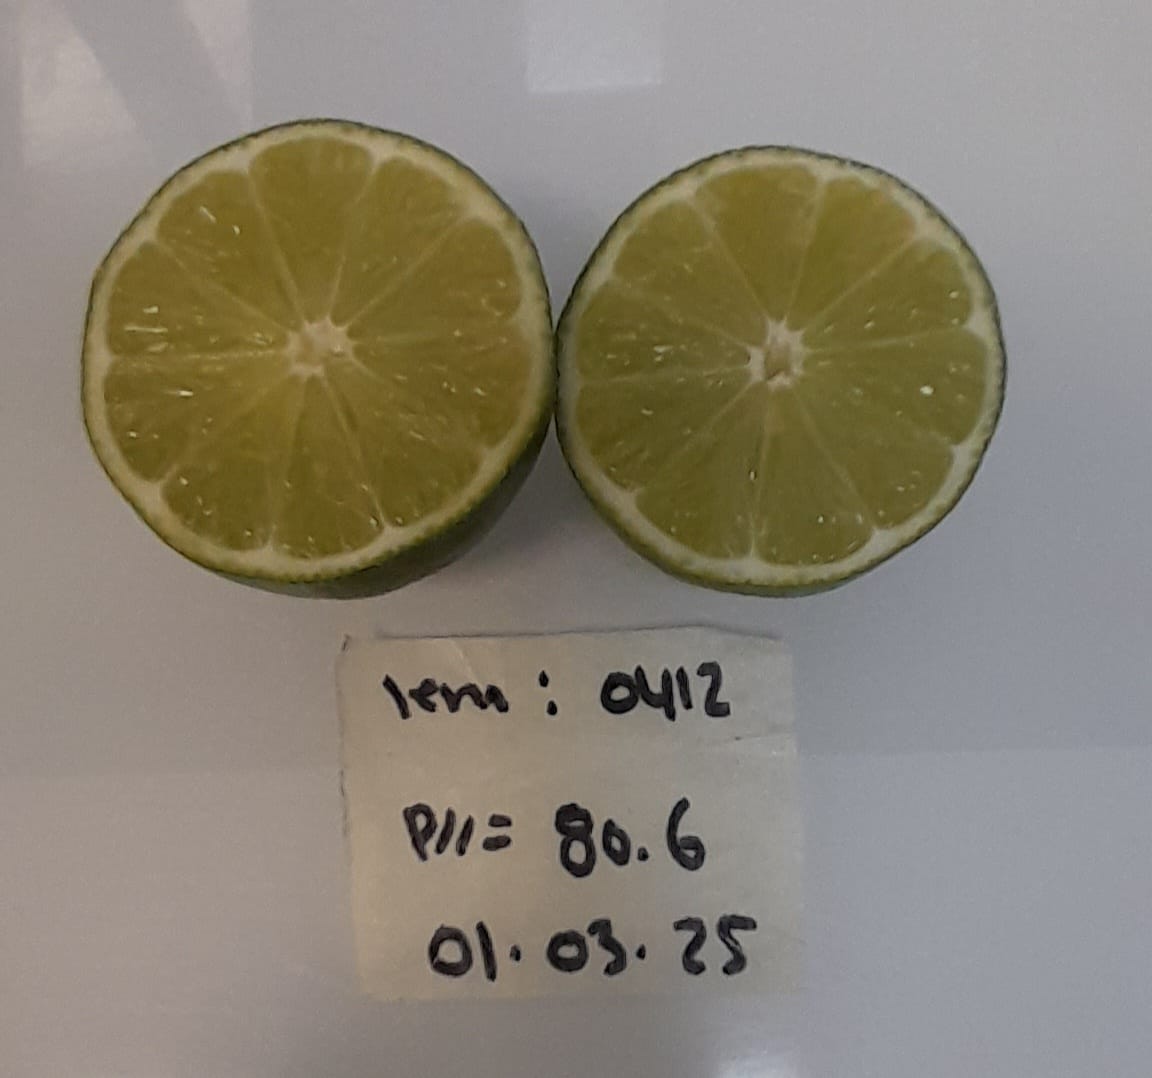 lem: 0412
P11= 80.6
01.03.25